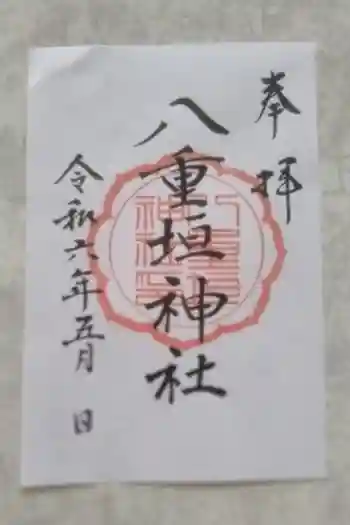 奉拝
八重垣神社
令和六年五月 日